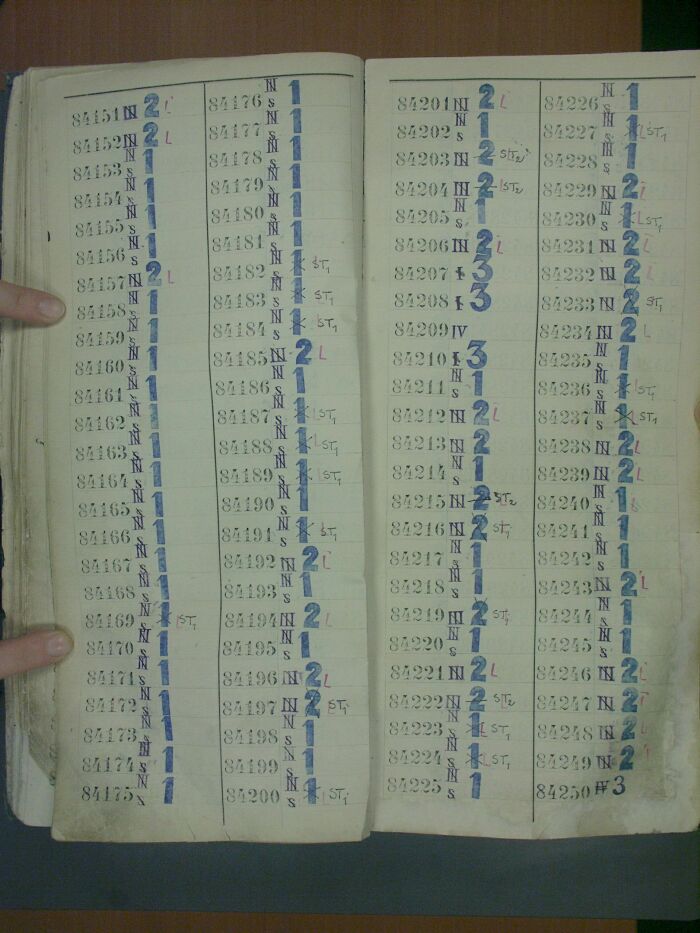 84151 2 L
84152 2 L
84153 s 1
84154 s 1
84155 s 1
84156 s 1
84157 2 L
84158 s 1
84159 s 1
84160 s 1
84161 s 1
84162 s 1
84163 s 1
84164 s 1
84165 s 1
84166 s 1
84167 s 1
84168 s 1
84169 s 1 L ST1
84170 s 1
84171 s 1
84172 s 1
84173 s 1
84174 s 1
84175 s 1
84176 s 1
84177 s 1
84178 s 1
84179 s 1
84180 s 1
84181 s 1
84182 s 1 ST1
84183 s 1 ST1
84184 s 1 ST1
84185 2 L
84186 s 1
84187 s 1 L ST1
84188 s 1 L ST1
84189 s 1 L ST1
84190 s 1
84191 s 1 ST1
84192 2 L
84193 s 1
84194 2 L
84195 s 1
84196 2 L
84197 2 ST1
84198 s 1
84199 s 1
84200 s 1 L ST1
84201 2 L
84202 s 1
84203 2 ST2
84204 2 L ST2
84205 s 1
84206 2 L
84207 I 3
84208 I 3
84209 IV
84210 I 3
84211 s 1
84212 2 L
84213 2
84214 s 1
84215 2 ST2
84216 2 ST1
84217 s 1
84218 s 1
84219 2 ST1
84220 s 1
84221 2 L
84222 2 ST2
84223 s 1 L ST1
84224 s 1 L ST1
84225 s 1
84226 s 1
84227 s 1 L ST1
84228 s 1
84229 2 L
84230 s 1 L ST1
84231 2 L
84232 2 L
84233 2 ST1
84234 2 L
84235 s 1
84236 s 1 L ST1
84237 s 1 L ST1
84238 2 L
84239 2 L
84240 s 1
84241 s 1
84242 s 1
84243 2 L
84244 s 1
84245 s 1
84246 2 L
84247 2
84248 2 L
84249 2
84250 IV 3